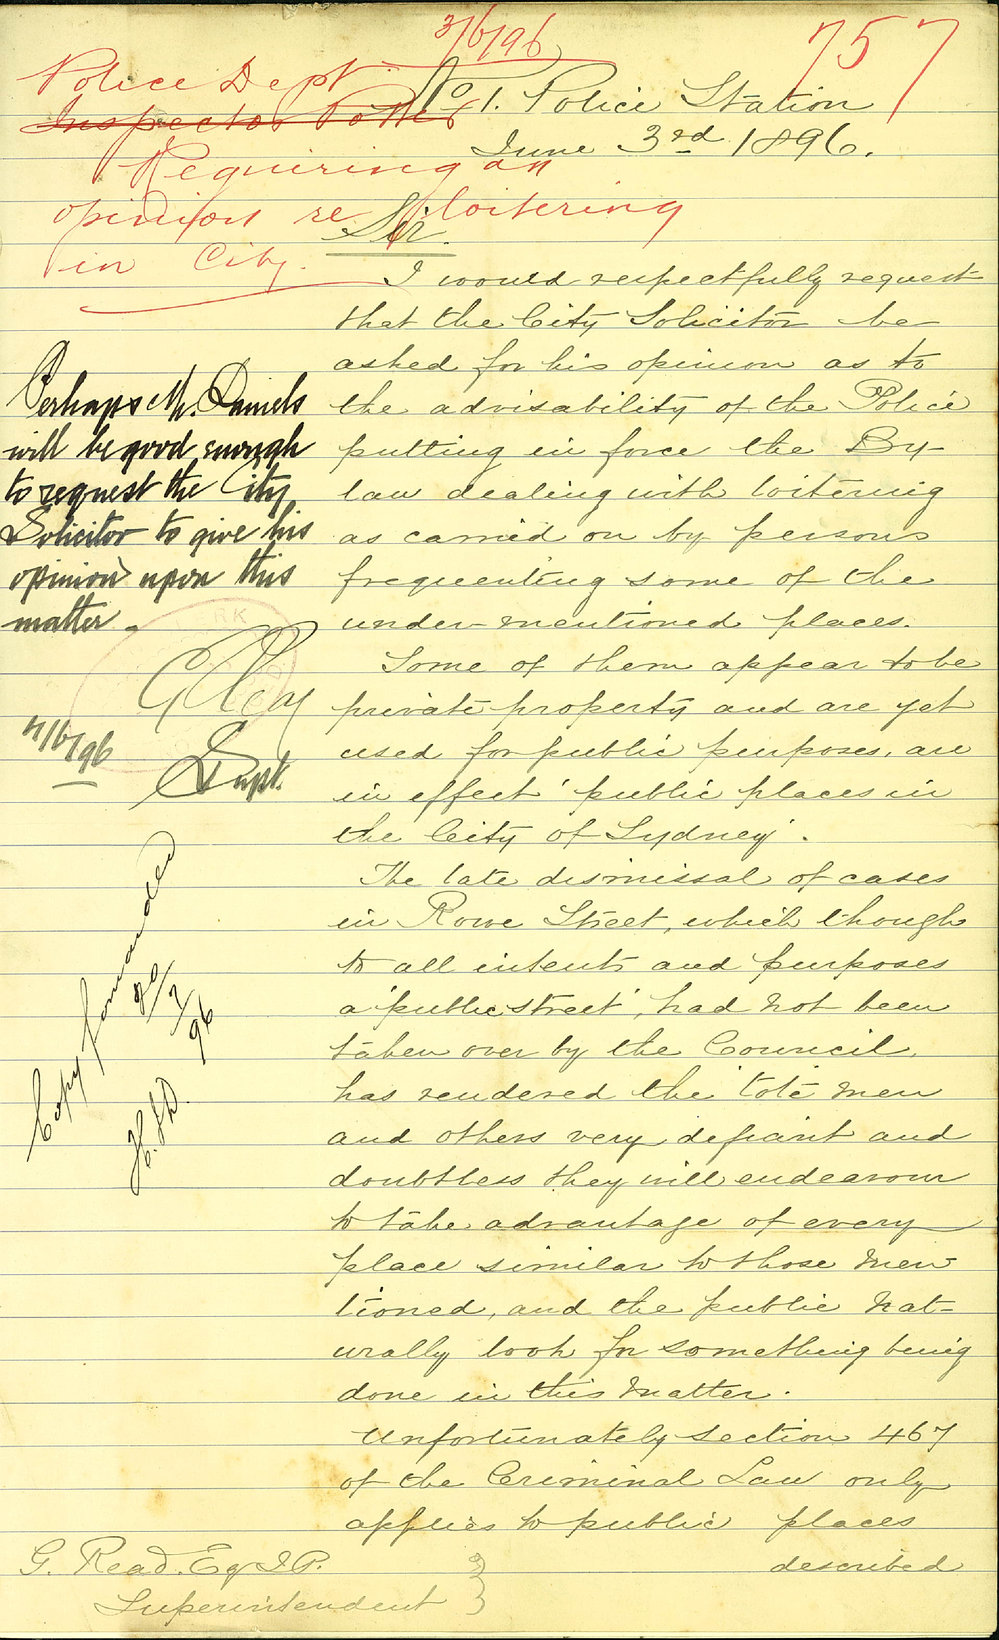 3/6/96
757
Police Dept
Inspector Potter
Requiring an
opinion re loitering
in City.
No 1. Police Station
June 3rd 1896.
Sir.
I would respectfully request
that the City Solicitor be
asked for his opinion as to
the advisability of the Police
putting in force the By-
law dealing with loitering
as carried on by persons
frequenting some of the
under-mentioned places.
Some of them appear to be
private property and are yet
used for public purposes, are
in effect 'public places in
the City of Sydney'.
The late dismissal of cases
in Rowe Street, which though
to all intents and purposes
a 'public street', had not been
taken over by the Council,
has rendered the 'tote' men
and others very defiant and
doubtless they will endeavour
to take advantage of every
place similar to those men-
tioned, and the public nat-
urally look for something being
done in this matter.
Unfortunately section 467
of the Criminal Law only
applies to public places
described
Perhaps Mr. Daniels
will be good enough
to request the City
Solicitor to give his
opinion upon this
matter.
G Read
Supt.
4/6/96
Copy forwarded
20/7/96
G. Read. Esq J.P.
Superintendent